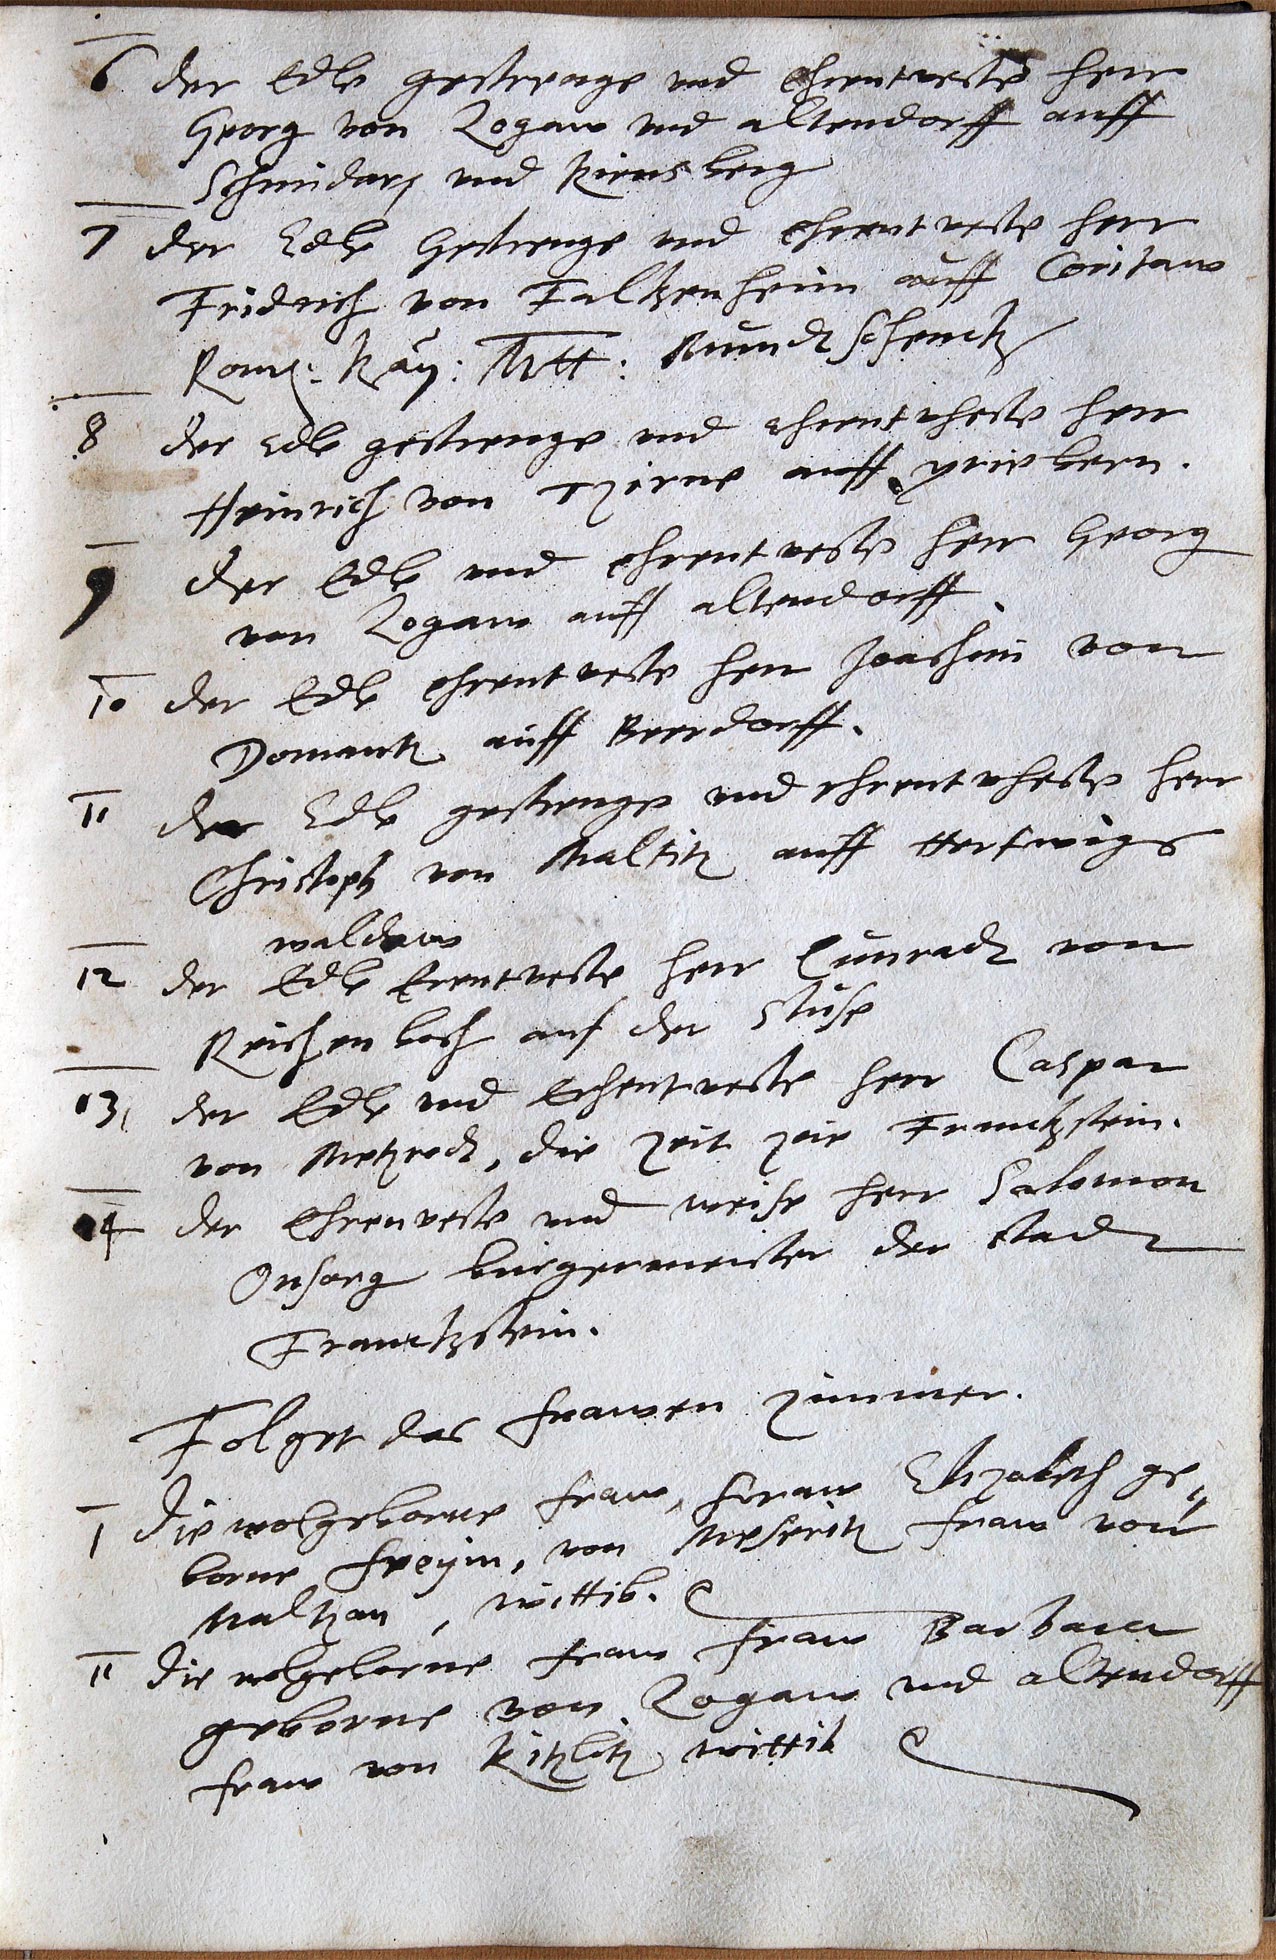 6 der Edle gestrenge und Ehrentveste herr
Georg von Logaw und altendorff auff
Schlundars und Kinsberg
7 der Edle Gestrenge und Ehrentveste herr
Fridrich von Falkenhein auff Coristaw
Röm: Kay: Mtt: Mundtschenck
8 der Edle gestrenge und Ehrentvheste herr
Heinrich von Tzirne auff priebern.
9 der Edle und Ehrentveste herr Georg
von Logaw auff altendorff.
10 der Edle Ehrentveste herr Joachim von
Domantz auff Beerdorff.
11 der Edle gestrenge und ehrentvheste herr
Christoph von Maltitz auff Hertwigs
waldaw
12 der Edle Erentveste herr Cunradt von
Reichenbach auf der Stuse
13, der Edle und Erhentveste herr Caspar
von Metzrodt, die zeit zue Franckstein.
14 der Ehrenveste und weise herr Salomon
Onsorg bürgermeister der Stadt
Franckstein.
Folget das frawen zimmer.
I die wolgeborne fraw, fraw Elizabeth ge„
borne freyin, von Meseritz fraw von
Maltzan, wittib.
II die wolgeborne fraw fraw Barbara
geborne von Logaw und altendorff
fraw von Kitzlitz wittib